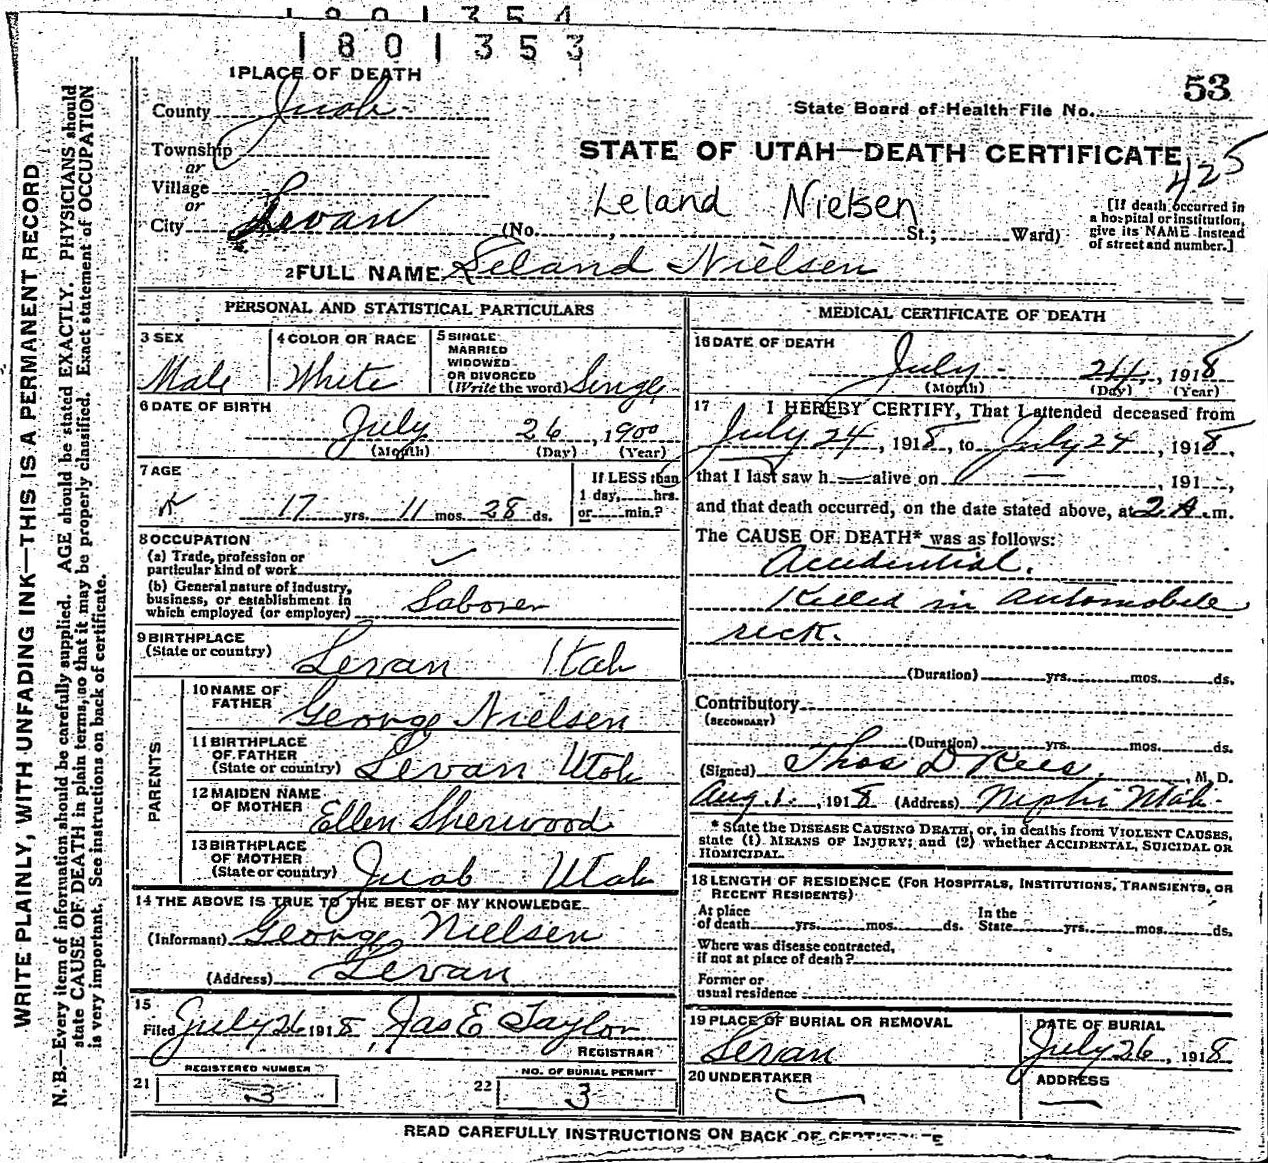 1801354
1801353
53
1 PLACE OF DEATH
County Juab
State Board of Health File No.
Township
or
STATE OF UTAH—DEATH CERTIFICATE
425
Village
or
Leland Nielsen
City Levan (No. , St.; Ward)
[If death occurred in a hospital or institution, give its NAME instead of street and number.]
2 FULL NAME Leland Nielsen
PERSONAL AND STATISTICAL PARTICULARS
3 SEX
Male
4 COLOR OR RACE
White
5 SINGLE
MARRIED
WIDOWED
OR DIVORCED
(Write the word) Single
6 DATE OF BIRTH
July 26, 1900
(Month) (Day) (Year)
7 AGE
17 yrs. 11 mos. 28 ds.
If LESS than
1 day, hrs.
or min.?
8 OCCUPATION
(a) Trade, profession or
particular kind of work
(b) General nature of Industry,
business, or establishment in
which employed (or employer) Laborer
9 BIRTHPLACE
(State or country) Levan Utah
PARENTS
10 NAME OF
FATHER George Nielsen
11 BIRTHPLACE
OF FATHER
(State or country) Levan Utah
12 MAIDEN NAME
OF MOTHER Ellen Sherwood
13 BIRTHPLACE
OF MOTHER
(State or country) Juab Utah
14 THE ABOVE IS TRUE TO THE BEST OF MY KNOWLEDGE
(Informant) George Nielsen
(Address) Levan
15
Filed July 26 1918, Jas E Taylor
REGISTRAR
21 REGISTERED NUMBER
3
22 NO. OF BURIAL PERMIT
3
MEDICAL CERTIFICATE OF DEATH
16 DATE OF DEATH
July 24, 1918
(Month) (Day) (Year)
17 I HEREBY CERTIFY, That I attended deceased from
July 24, 1918, to July 24, 1918,
that I last saw h — alive on — , 191 ,
and that death occurred, on the date stated above, at 2 A. m.
The CAUSE OF DEATH* was as follows:
Accidential.
Killed in automobile
reck.
(Duration) yrs. mos. ds.
Contributory
(SECONDARY)
(Duration) yrs. mos. ds.
(Signed) Thos D Rees, M. D.
Aug. 1, 1918 (Address) Nephi Utah
* State the DISEASE CAUSING DEATH, or, in deaths from VIOLENT CAUSES,
state (1) MEANS OF INJURY; and (2) whether ACCIDENTAL, SUICIDAL OR
HOMICIDAL.
18 LENGTH OF RESIDENCE (FOR HOSPITALS, INSTITUTIONS, TRANSIENTS, OR
RECENT RESIDENTS)
At place
of death yrs. mos. ds.
In the
State yrs. mos. ds.
Where was disease contracted,
if not at place of death?
Former or
usual residence
19 PLACE OF BURIAL OR REMOVAL
Levan
DATE OF BURIAL
July 26, 1918
20 UNDERTAKER
ADDRESS
READ CAREFULLY INSTRUCTIONS ON BACK OF CERTIFICATE
WRITE PLAINLY, WITH UNFADING INK—THIS IS A PERMANENT RECORD
N. B.—Every item of information should be carefully supplied. AGE should be stated EXACTLY. PHYSICIANS should
state CAUSE OF DEATH in plain terms, so that it may be properly classified. Exact statement of OCCUPATION
is very important. See instructions on back of certificate.